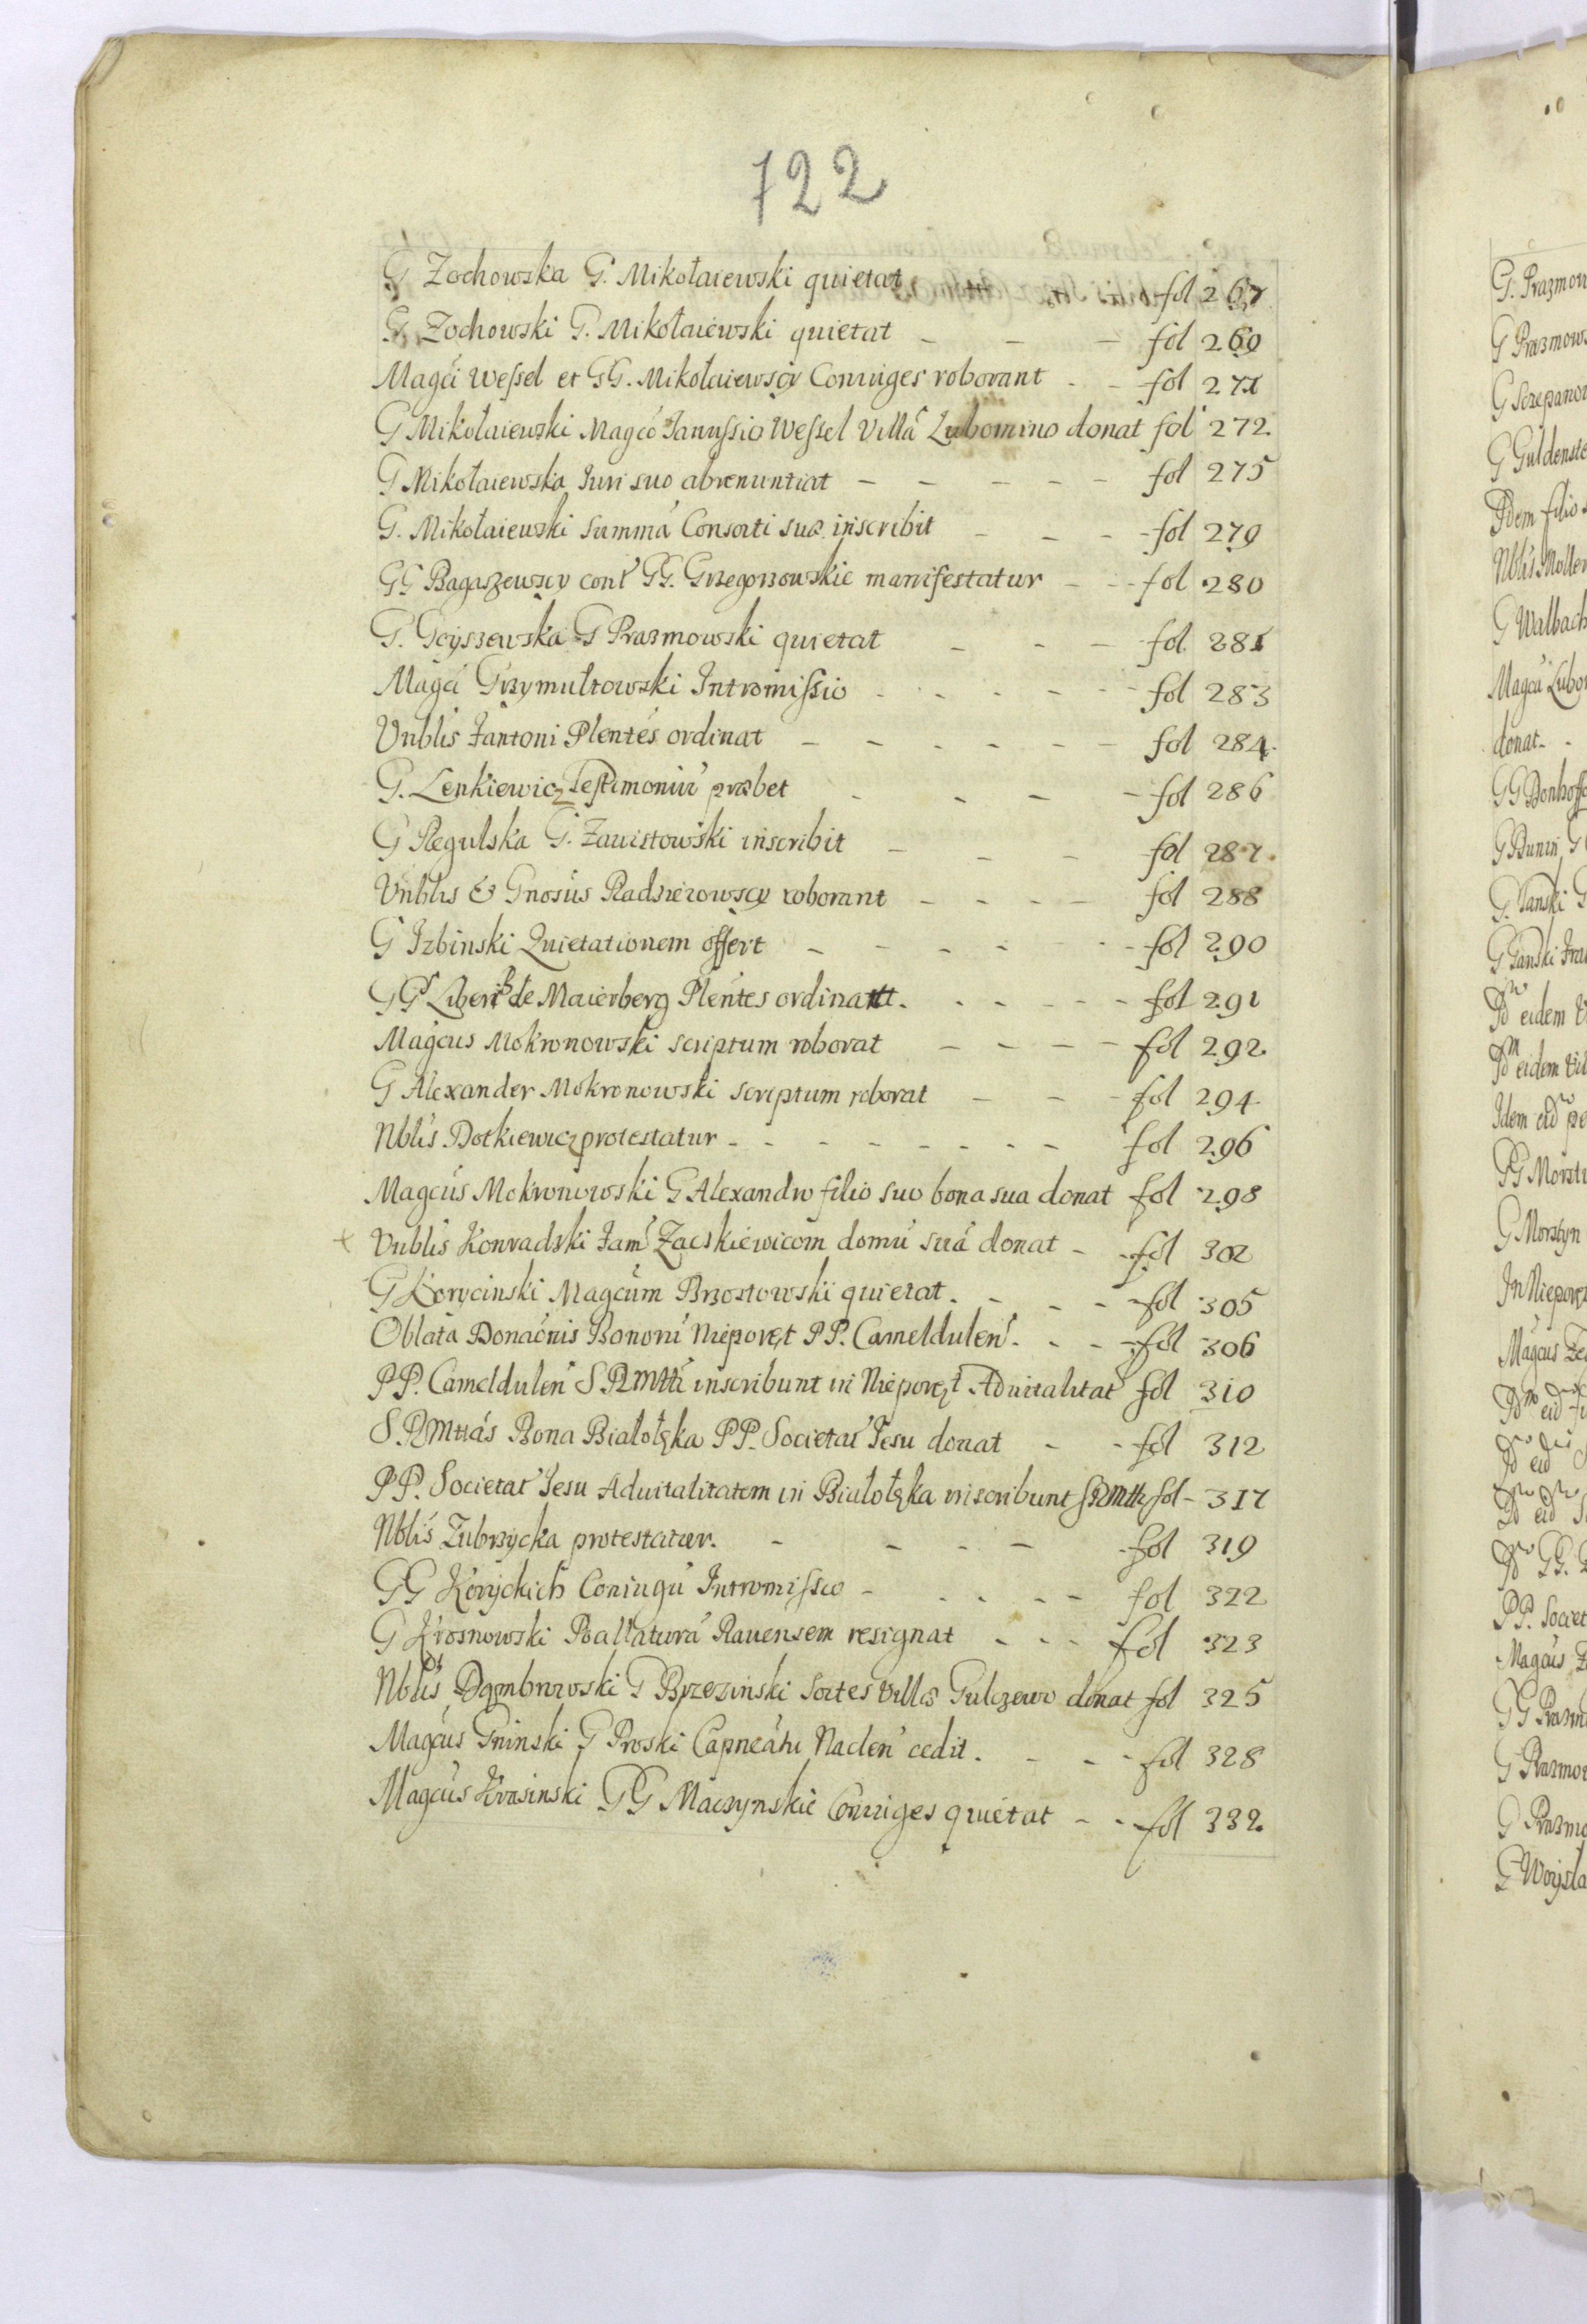 722
G Zochowska G. Mikołaiewski quietat fol 267
G. Zochowski G. Mikołaiewski quietat - - - fol 269
Magci Wessel et GG. Mikołaiewscy Coniuges roborant - - fol 271
G Mikołaiewski Magco Ianussio Wessel Villa Lubomino donat fol 272
G Mikołaiewska Iuri suo abrenuntiat - - - - - fol 275
G. Mikołaiewski Summa Consorti suæ inscribit - - - fol 279
GG Bagaszewscy cont GG. Grzegorzowskie manifestatur - - fol 280
G. Goyszewska G Prazmowski quietat - - - fol 281
Magci Grzymułtowski Intromissio - - - - - fol 283
Vnblis Fantoni Plentes ordinat - - - - - - fol 284
G. Lenkiewicz Testimoniu præbet - - - - fol 286
G Regulska G. Zawistowski inscribit - - - fol 287.
Vnblis & Gnosus Radzieiowscy roborant - - - - fol 288
G Izbinski Quietationem offert - - - - - fol 290
GG Liberi B de Maierberg Plentes ordinatt - - - - - fol 291
Magcus Mokronowski scriptum roborat - - - - fol 292
G Alexander Mokronowski scriptum roborat - - - fol 294
Nblis Dotkiewicz protestatur - - - - - - - fol 296
Magcus Mokronowski G Alexandro filio suo bona sua donat fol 298
Vnblis Konradski Fam Zacskiewicom domu sua donat - - fol 302
G Korycinski Magcum Brzostowski quietat - - - - fol 305
Oblata Donacnis Bonoru Nieporęt PP. Cameldulen - - - fol 306
PP. Cameldulen S R Mtti inscribunt in Nieporęt Aduitalitat fol 310
S. R Mttas Bona Białołęka PP. Societat Iesu donat - - fol 312
PP. Societat Iesu Aduitalitatem in Białołęka inscribunt S R Mtti fol - 317
Nblis Zubrzycka protestatur. - - - - - fol 319
GG Koryckich Coniugu Intromissio - - - - - fol 322
G Krosnowski Pallatura Rauensem resignat - - - fol 323
Nblis Dąmbrowski G Brzezinski Sortes villæ Gulczewo donat fol 325
Magcus Gninski G Proski Capneatu Naclen cedit - - - - fol 328
Magcus Krasinski GG Maczynskie Coniuges quietat - - fol 332